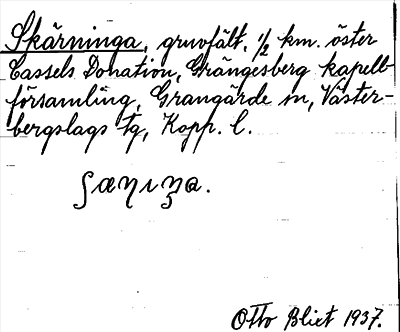 Skärninga, gruvfält, 1/2 km. öster
Cassels Donation, Grängesberg kapell-
församling, Grangärde sn, Väster-
bergslags tg, Kopp. l.
Otto Blixt 1937.